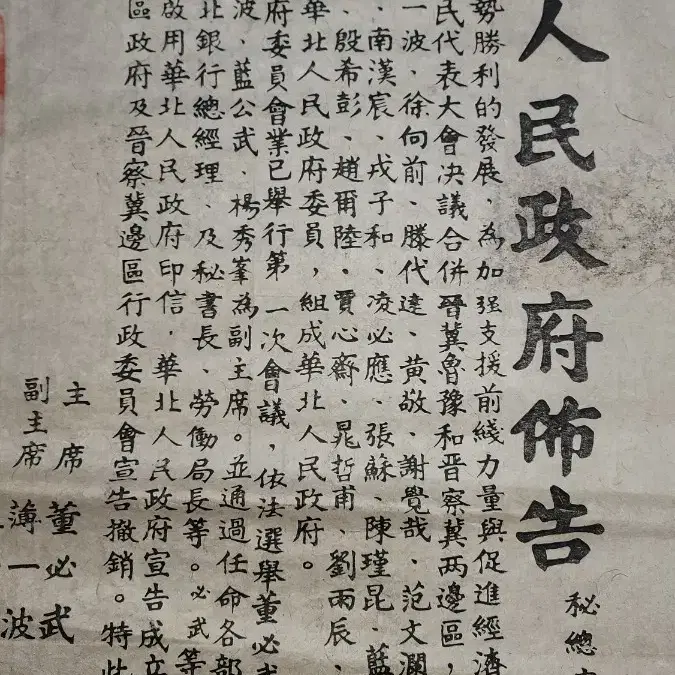 人民政府佈告
秘總字
勢勝利的發展、為加强支援前綫力量與促進經濟
民代表大會决議合併晉冀魯豫和晋察冀两邊區，
一波、徐向前、滕代逹、黄敬、謝覺哉、范文瀾
、南漢宸、戎子和、凌必應、張蘇、陳瑾昆、藍
、殷希彭、趙爾陸、賈心齋、晁哲甫、劉雨辰，
華北人民政府委員，組成華北人民政府。
府委員會業已舉行第一次會議，依法選舉董必武
波、藍公武、楊秀峯為副主席。並通過任命各部
北銀行總經理、及秘書長、勞働局長等。必武等
啟用華北人民政府印信，華北人民政府宣告成立
區政府及晉察冀邊區行政委員會宣告撤銷。特此
主席 董必武
副主席 薄一波